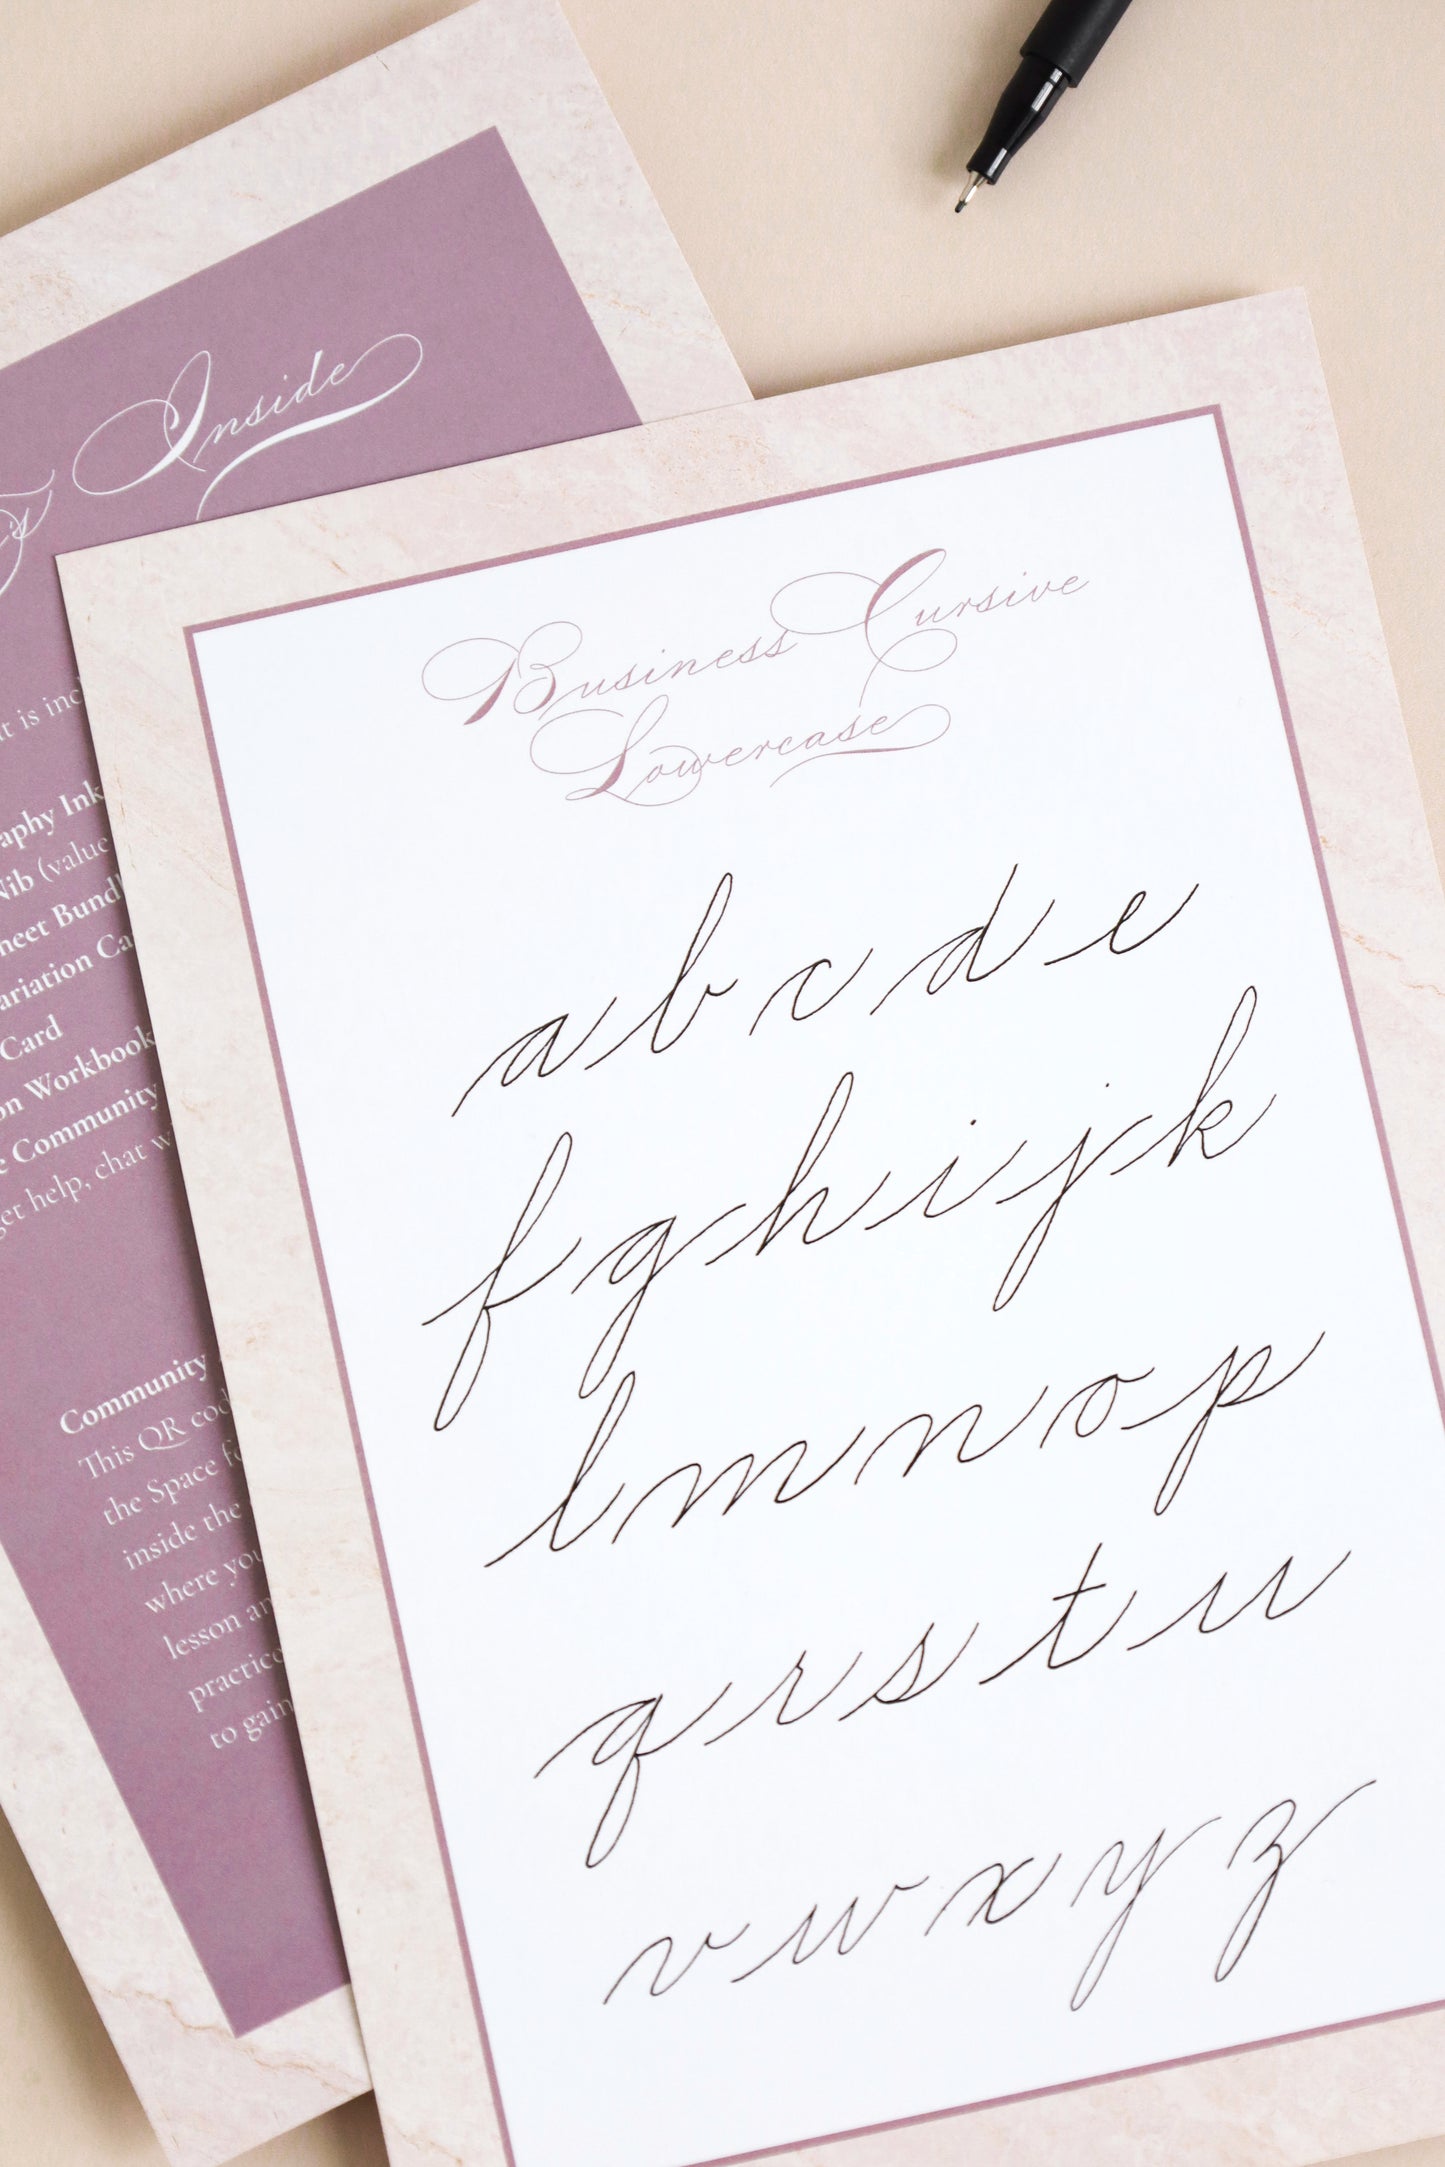 Inside
t is inc
aphy Ink
Nib (value
heet Bundl
ariation Ca
Card
on Workbook
e Community
get help, chat w
Community
This QR cod
the Space f
inside the
where you
lesson an
practice
to gain
Business Cursive
Lowercase
a b c d e
f g h i j k
l m n o p
q r s t u
v w x y z